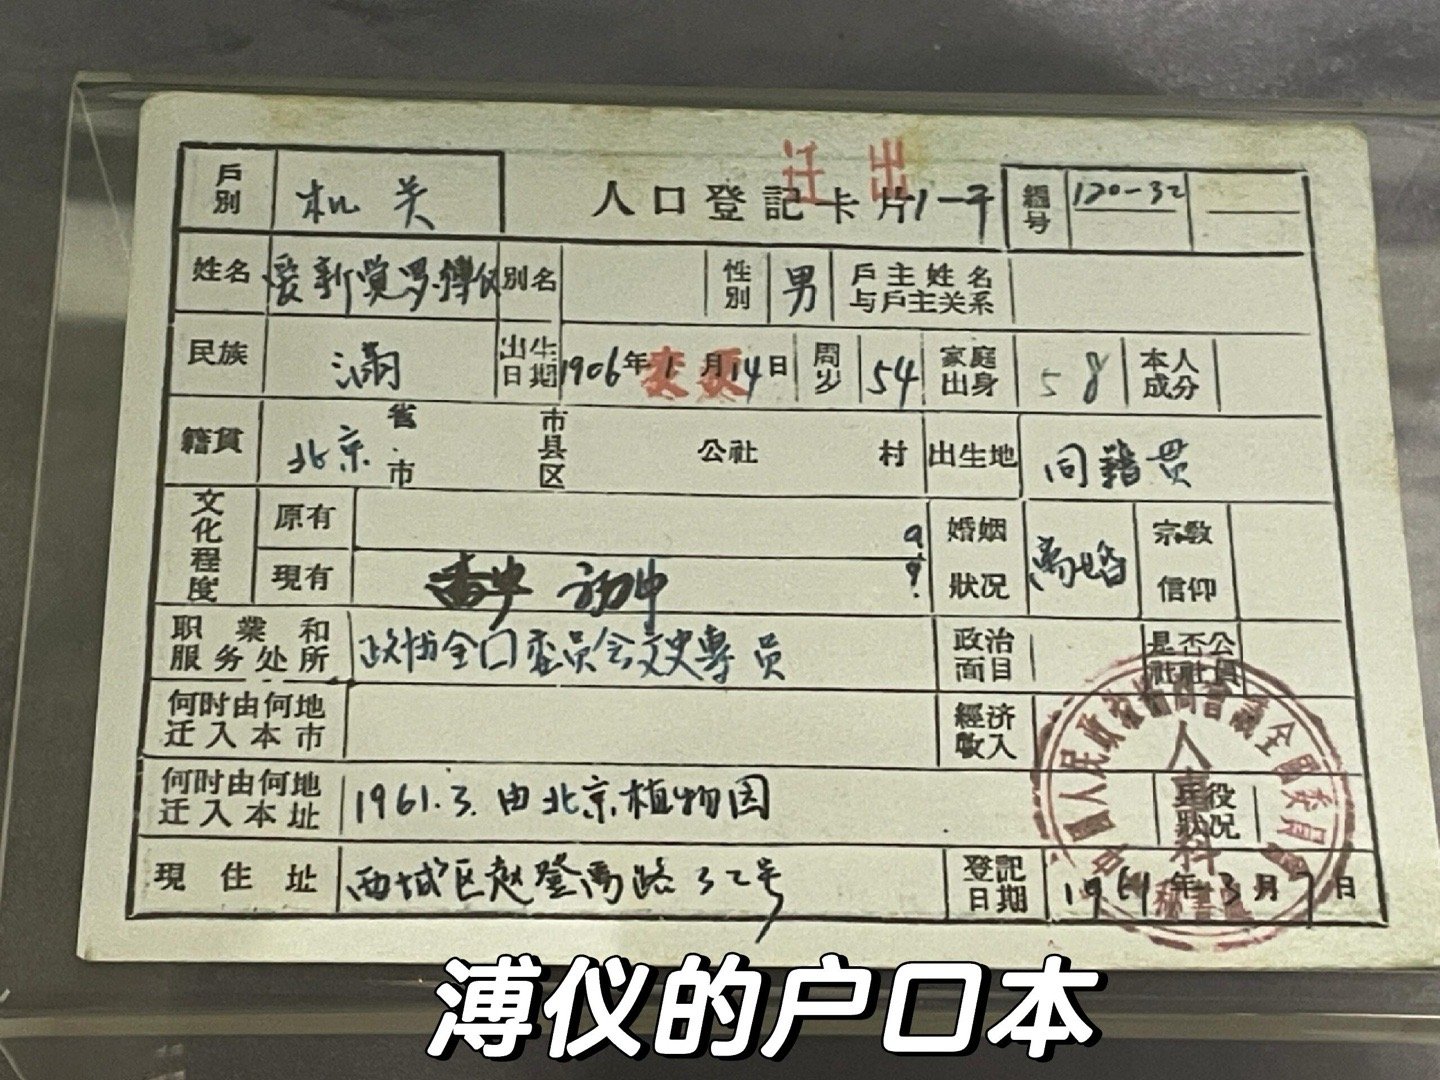 迁出
戶別 机关 人口登記卡片 1-于 編号 120-32
姓名 爱新覚罗溥仪 別名 性別 男 戶主姓名与戶主关系
民族 满 出生日期 1906年1月14日 变更 周岁 54 家庭出身 58 本人成分
籍貫 北京 省.市 市县区 公社 村 出生地 同籍贯
文化程度 原有 婚姻狀况 离婚 宗教信仰
現有 初中
职業和服务处所 政协全囗委员会文史專员 政治面目 是否公社社員
何时由何地迁入本市 經济收入
何时由何地迁入本址 1961.3.由北京植物园 兵役狀况
現住址 西城区赵登禹路32号 登記日期 1961年3月7日
中國人民政治協商會議全國委員會
人事科
秘書處
溥仪的户口本